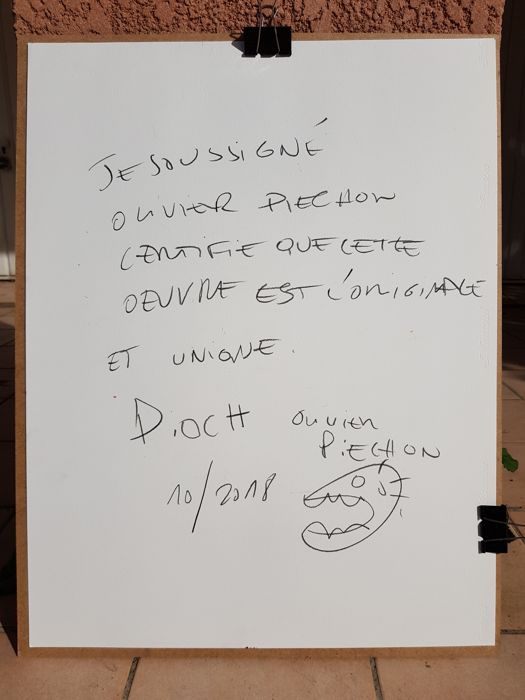 JE SOUSSIGNÉ
OLIVIER PIECHON
CERTIFIE QUE CETTE
OEUVRE EST L'ORIGINALE
ET UNIQUE.
PiOCH OLIVIER
PiECHON
10/2018